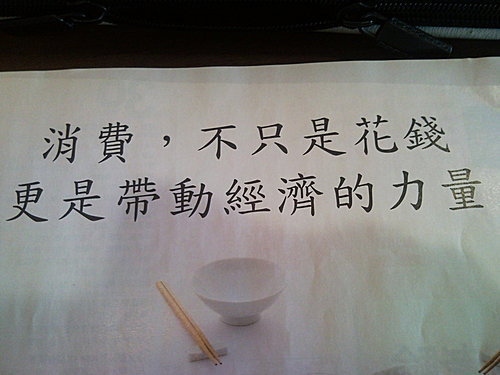 消費，不只是花錢
更是帶動經濟的力量